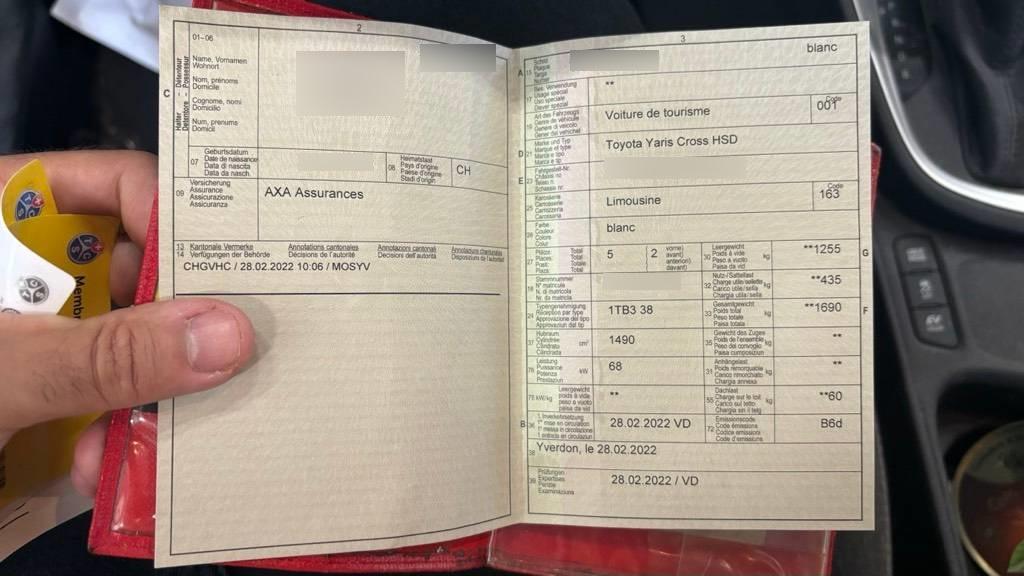 2
01–06
Name, Vornamen
Wohnort
Nom, prénoms
Domicile
Cognome, nomi
Domicilio
Num, prenums
Domicil
C
Halter - Détenteur
Detentore - Possessur
07
Geburtsdatum
Date de naissance
Data di nascita
Data da nasch.
08
Heimatstaat
Pays d'origine
Paese d'origine
Stadi d'origin
CH
09
Versicherung
Assurance
Assicurazione
Assicuranza
AXA Assurances
13
14
Kantonale Vermerke
Verfügungen der Behörde
Annotations cantonales
Décisions de l'autorité
Annotazioni cantonali
Decisioni dell'autorità
Annotaziuns chantunalas
Disposiziuns da l'autoritad
CHGVHC / 28.02.2022 10:06 / MOSYV
3
A
15
Schild
Plaque
Targa
Numer
blanc
17
Bes. Verwendung
Usage spécial
Uso speciale
Diever spezial
**
19
Art des Fahrzeugs
Genre de véhicule
Genere di veicolo
Gener del vehichel
Voiture de tourisme
Code
001
D
21
Marke und Typ
Marque et type
Marca e tipo
Marca e tip
Toyota Yaris Cross HSD
E
23
Fahrgestell-Nr.
Châssis no
Telaio n.
Schassis nr.
25
Karosserie
Carrosserie
Carrozzeria
Carossaria
Limousine
Code
163
26
Farbe
Couleur
Colore
Colur
blanc
27
Plätze: Total
Places: Total
Posti: Totale
Plazs: Total
5
2
vorne)
avant)
anteriori)
davant)
30
Leergewicht
Poids à vide
Peso a vuoto
Paisa da vid
kg
**1255
G
18
Stammnummer
N° matricule
N. di matricola
Nr. da matricla
32
Nutz-/Sattellast
Charge utile/sellette
Carico utile/sella
Chargia utila/sella
kg
**435
24
Typengenehmigung
Réception par type
Approvazione del tipo
Approvaziun dal tip
1TB3 38
33
Gesamtgewicht
Poids total
Peso totale
Paisa totala
kg
**1690
F
37
Hubraum
Cylindrée
Cilindrata
Cilindrada
cm³
1490
35
Gewicht des Zuges
Poids de l'ensemble
Peso del convoglio
Paisa cumposiziun
kg
**
76
Leistung
Puissance
Potenza
Prestaziun
kW
68
31
Anhängelast
Poids remorquable
Carico rimorchiato
Chargia annexa
kg
**
78
kW/kg
Leergewicht
poids à vide
peso a vuoto
paisa da vid
**
55
Dachlast
Charge sur le toit
Carico sul tetto
Chargia sin il tetg
kg
**60
B
36
1. Inverkehrsetzung
1re mise en circulation
1a messa in circolazione
1. entrada en circulaziun
28.02.2022 VD
72
Emissionscode
Code émissions
Codice emissioni
Code d'emissiuns
B6d
38
Yverdon, le 28.02.2022
39
Prüfungen
Expertises
Perizie
Examinaziuns
28.02.2022 / VD
Membr
TCS
EV